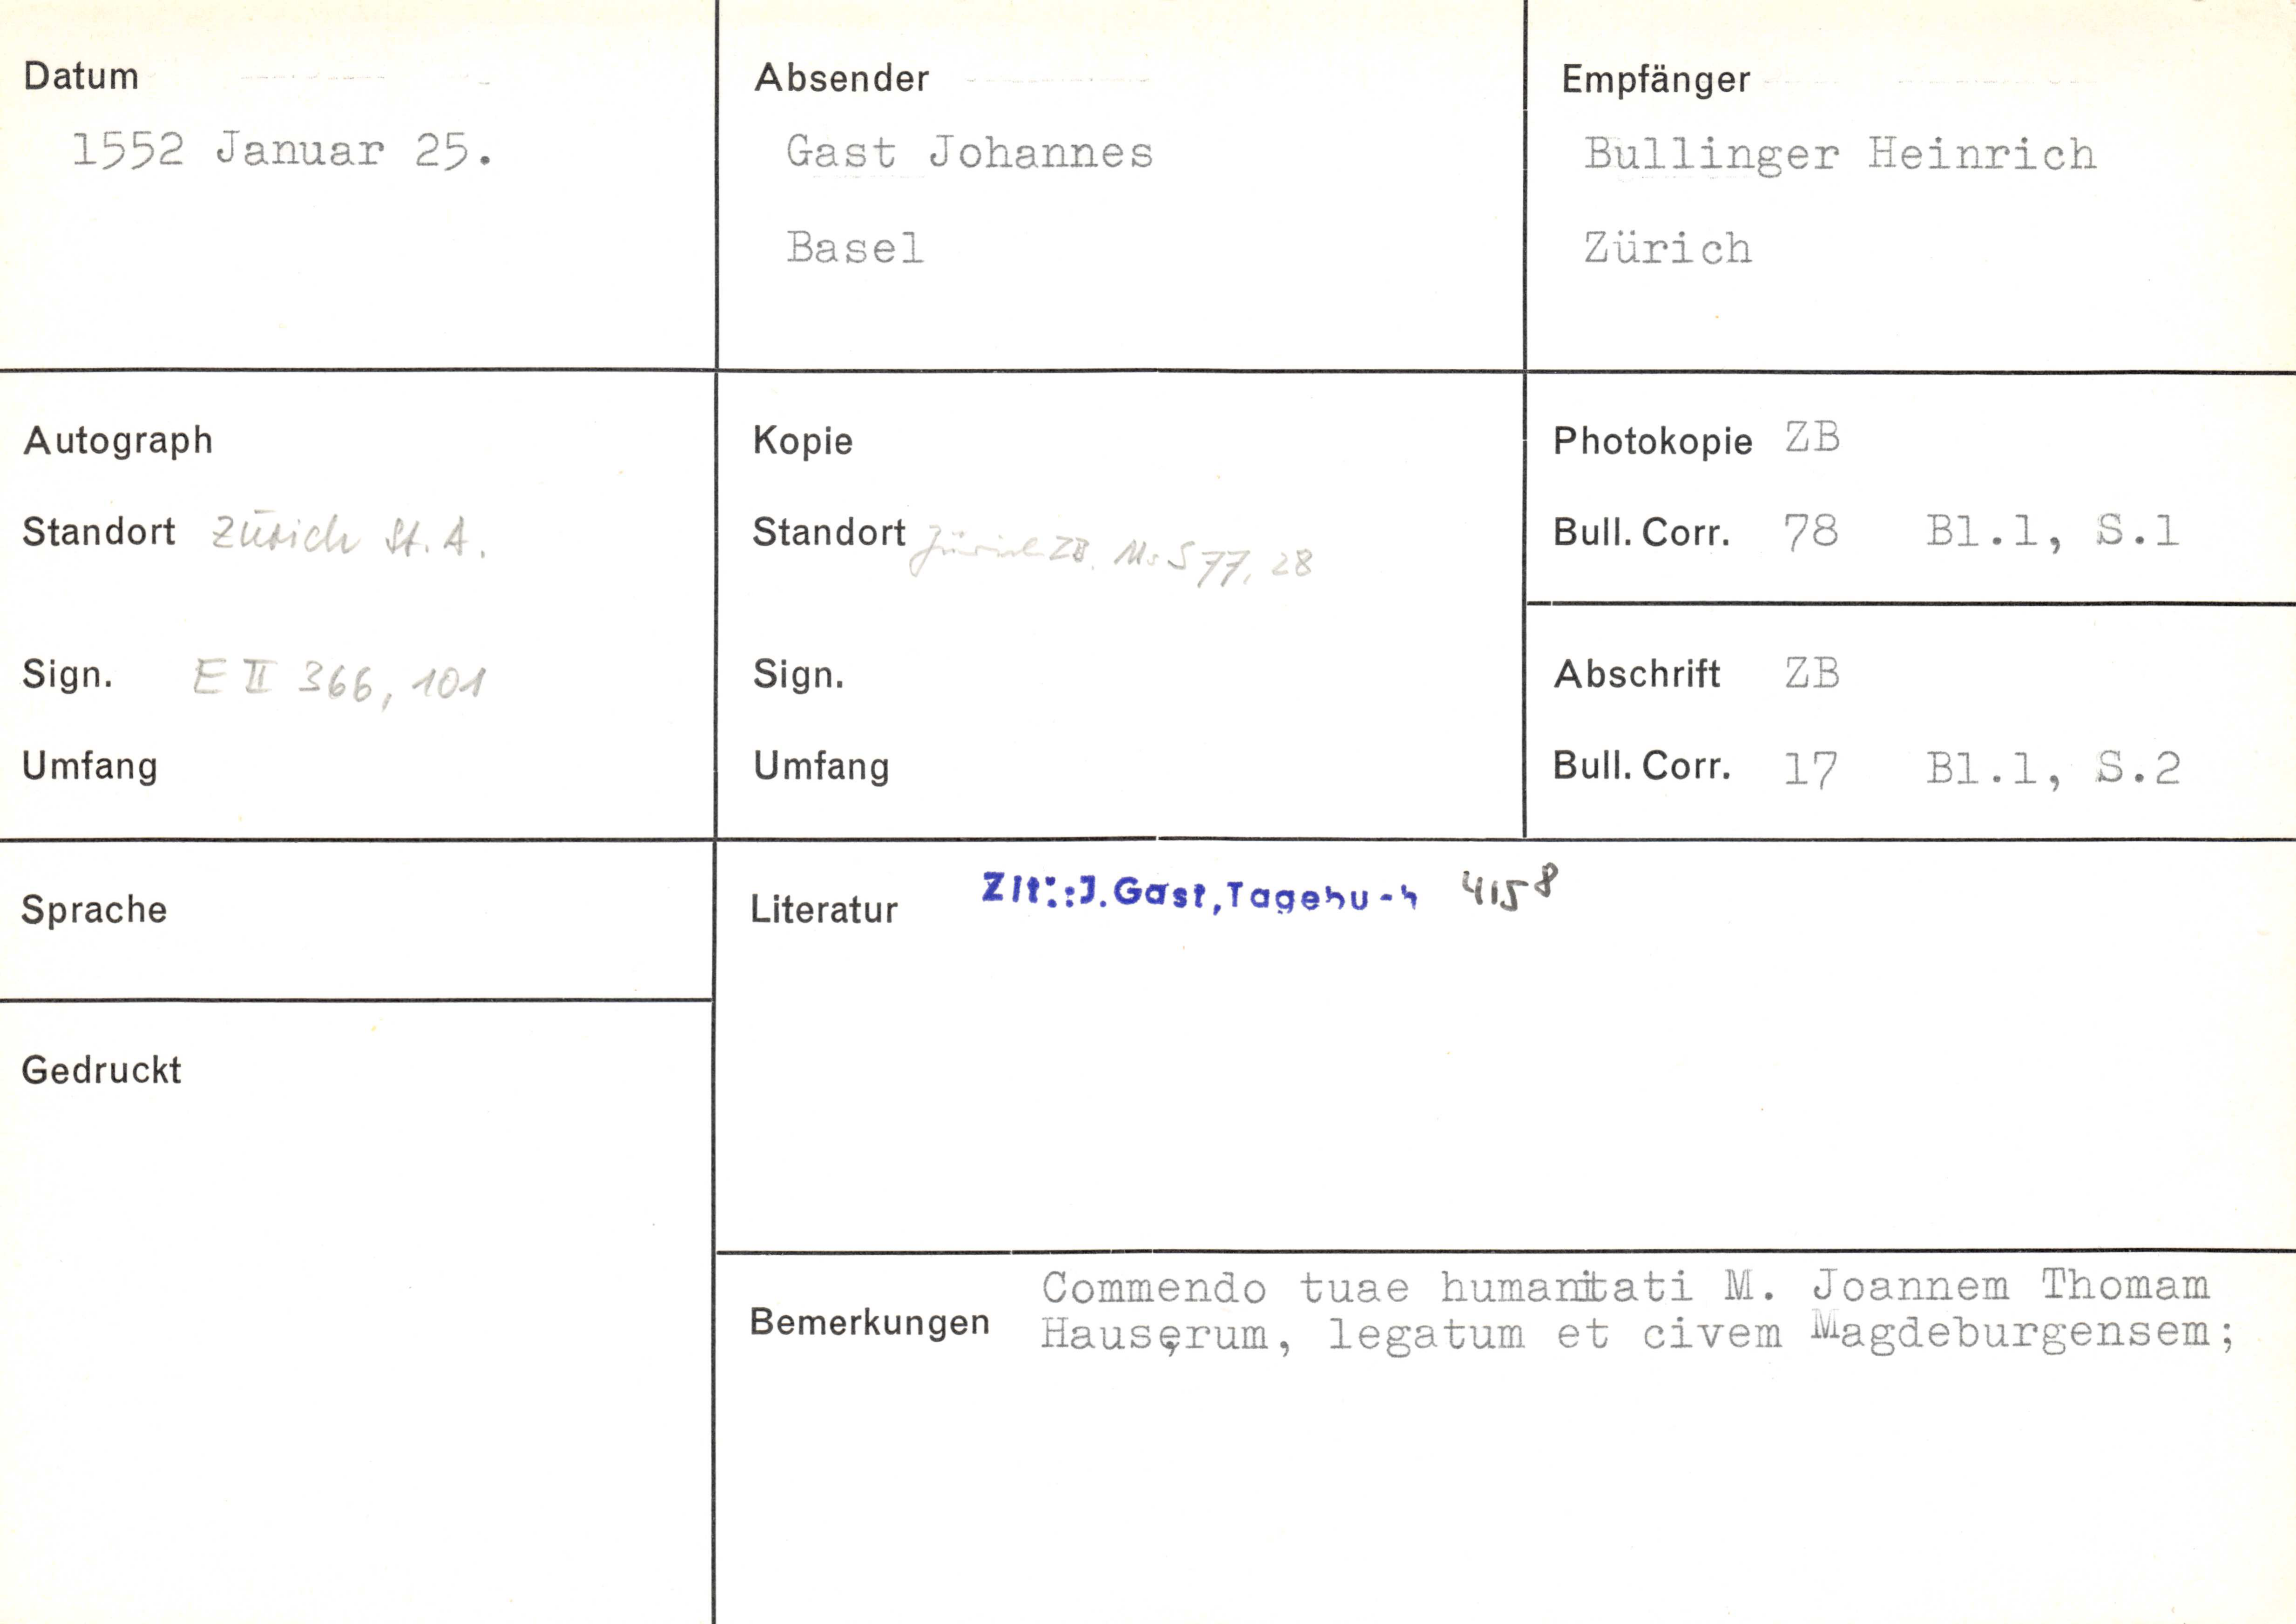 Datum
1552 Januar 25.
Absender
Gast Johannes
Basel
Empfänger
Bullinger Heinrich
Zürich
Autograph
Standort Zürich St. A.
Sign. E II 366, 101
Umfang
Kopie
Standort Zürich ZB. Ms S 77, 28
Sign.
Umfang
Photokopie ZB
Bull. Corr. 78 Bl.1, S.1
Abschrift ZB
Bull. Corr. 17 Bl.1, S.2
Sprache
Gedruckt
Literatur Zit.: J. Gast, Tagebuch 4158
Bemerkungen
Commendo tuae humanitati M. Joannem Thomam
Hauserum, legatum et civem Magdeburgensem;